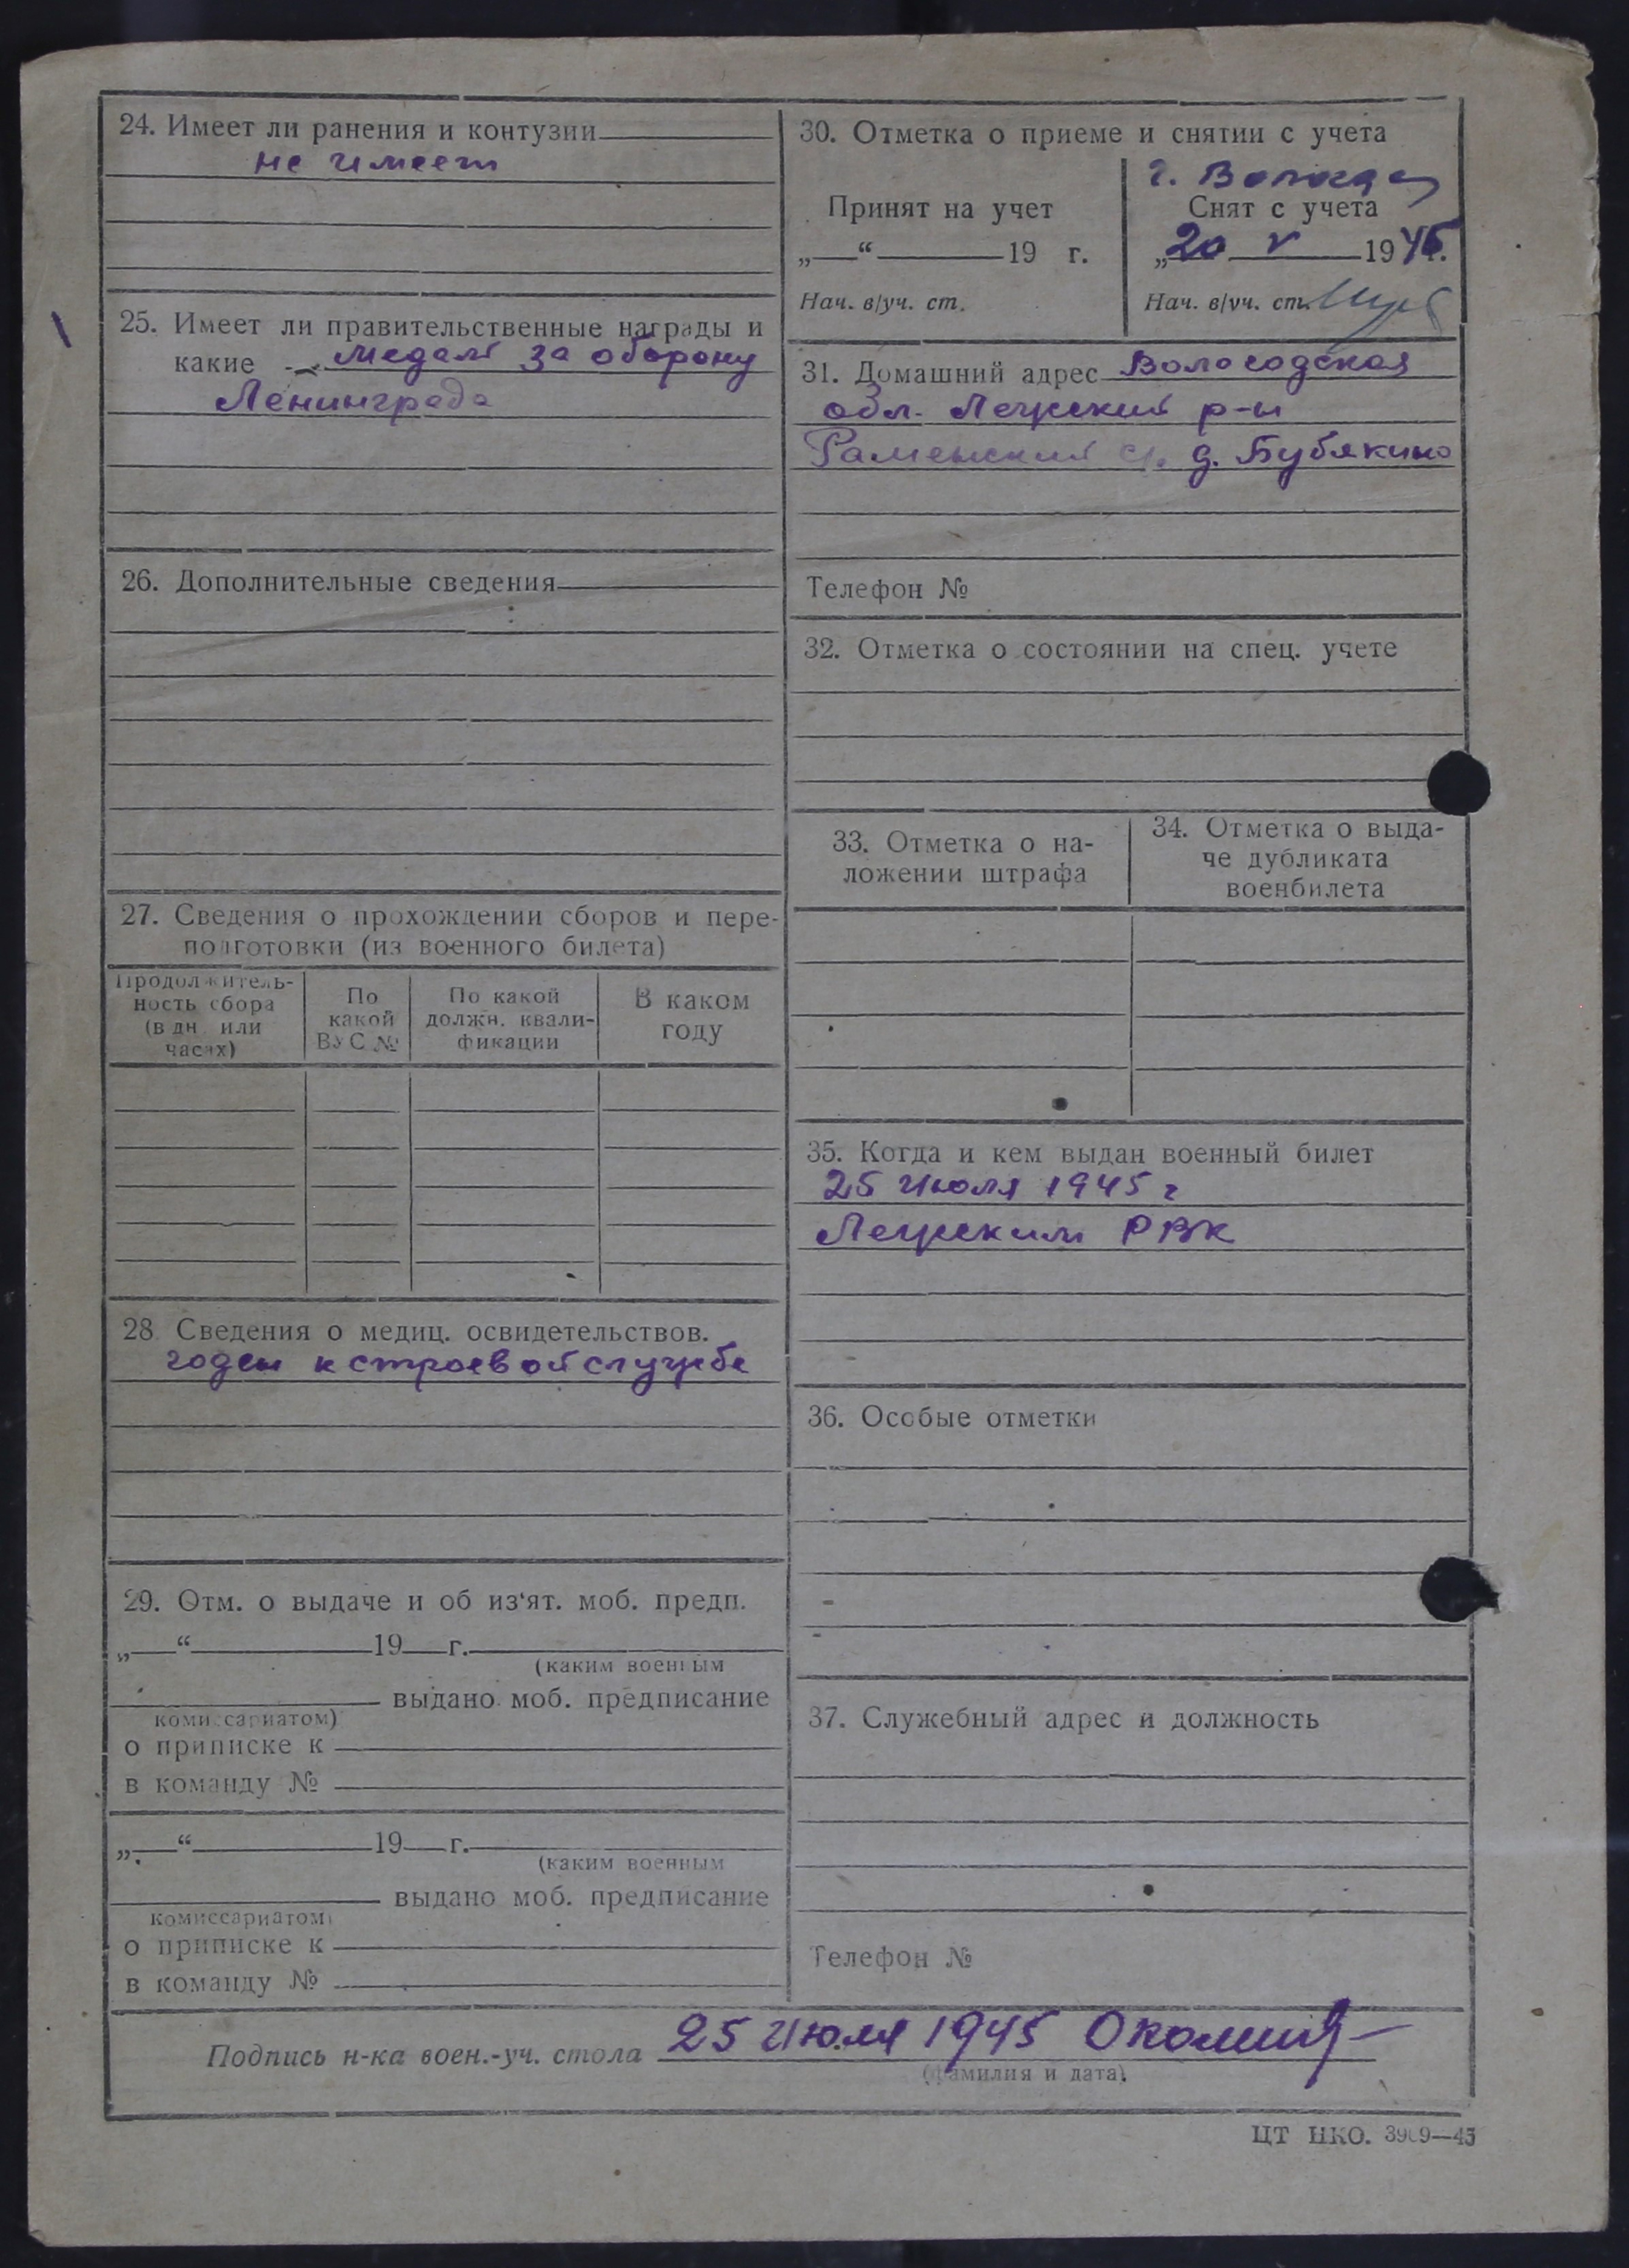 24. Имеет ли ранения и контузии
не имеет
25. Имеет ли правительственные награды и
какие медаль за оборону
Ленинграда
26. Дополнительные сведения
27. Сведения о прохождении сборов и пере-
подготовки (из военного билета)
Продолжитель-
ность сбора
(в дн. или
часах)
По
какой
ВУС №
По какой
должн. квали-
фикации
В каком
году
28 Сведения о медиц. освидетельствов.
годен к строевой службе
29. Отм. о выдаче и об из'ят. моб. предп.
„—“ 19 г.
(каким военным
выдано моб. предписание
комиссариатом)
о приписке к
в команду №
„—“ 19 г.
(каким военным
выдано моб. предписание
комиссариатом)
о приписке к
в команду №
30. Отметка о приеме и снятии с учета
Принят на учет
„—“ 19 г.
Нач. в/уч. ст.
г. Вологда
Снят с учета
„20 V 19
Нач. в/уч. ст.
31. Домашний адрес Вологодская
обл. Лежский р-н
Раменский с/с. д. Бубякино
Телефон №
32. Отметка о состоянии на спец. учете
33. Отметка о на-
ложении штрафа
34. Отметка о выда-
че дубликата
военбилета
35. Когда и кем выдан военный билет
25 июля 1945 г
Лежским РВК
36. Особые отметки
37. Служебный адрес и должность
Телефон №
Подпись н-ка воен.-уч. стола 25 июля 1945
(фамилия и дата).
ЦТ НКО.